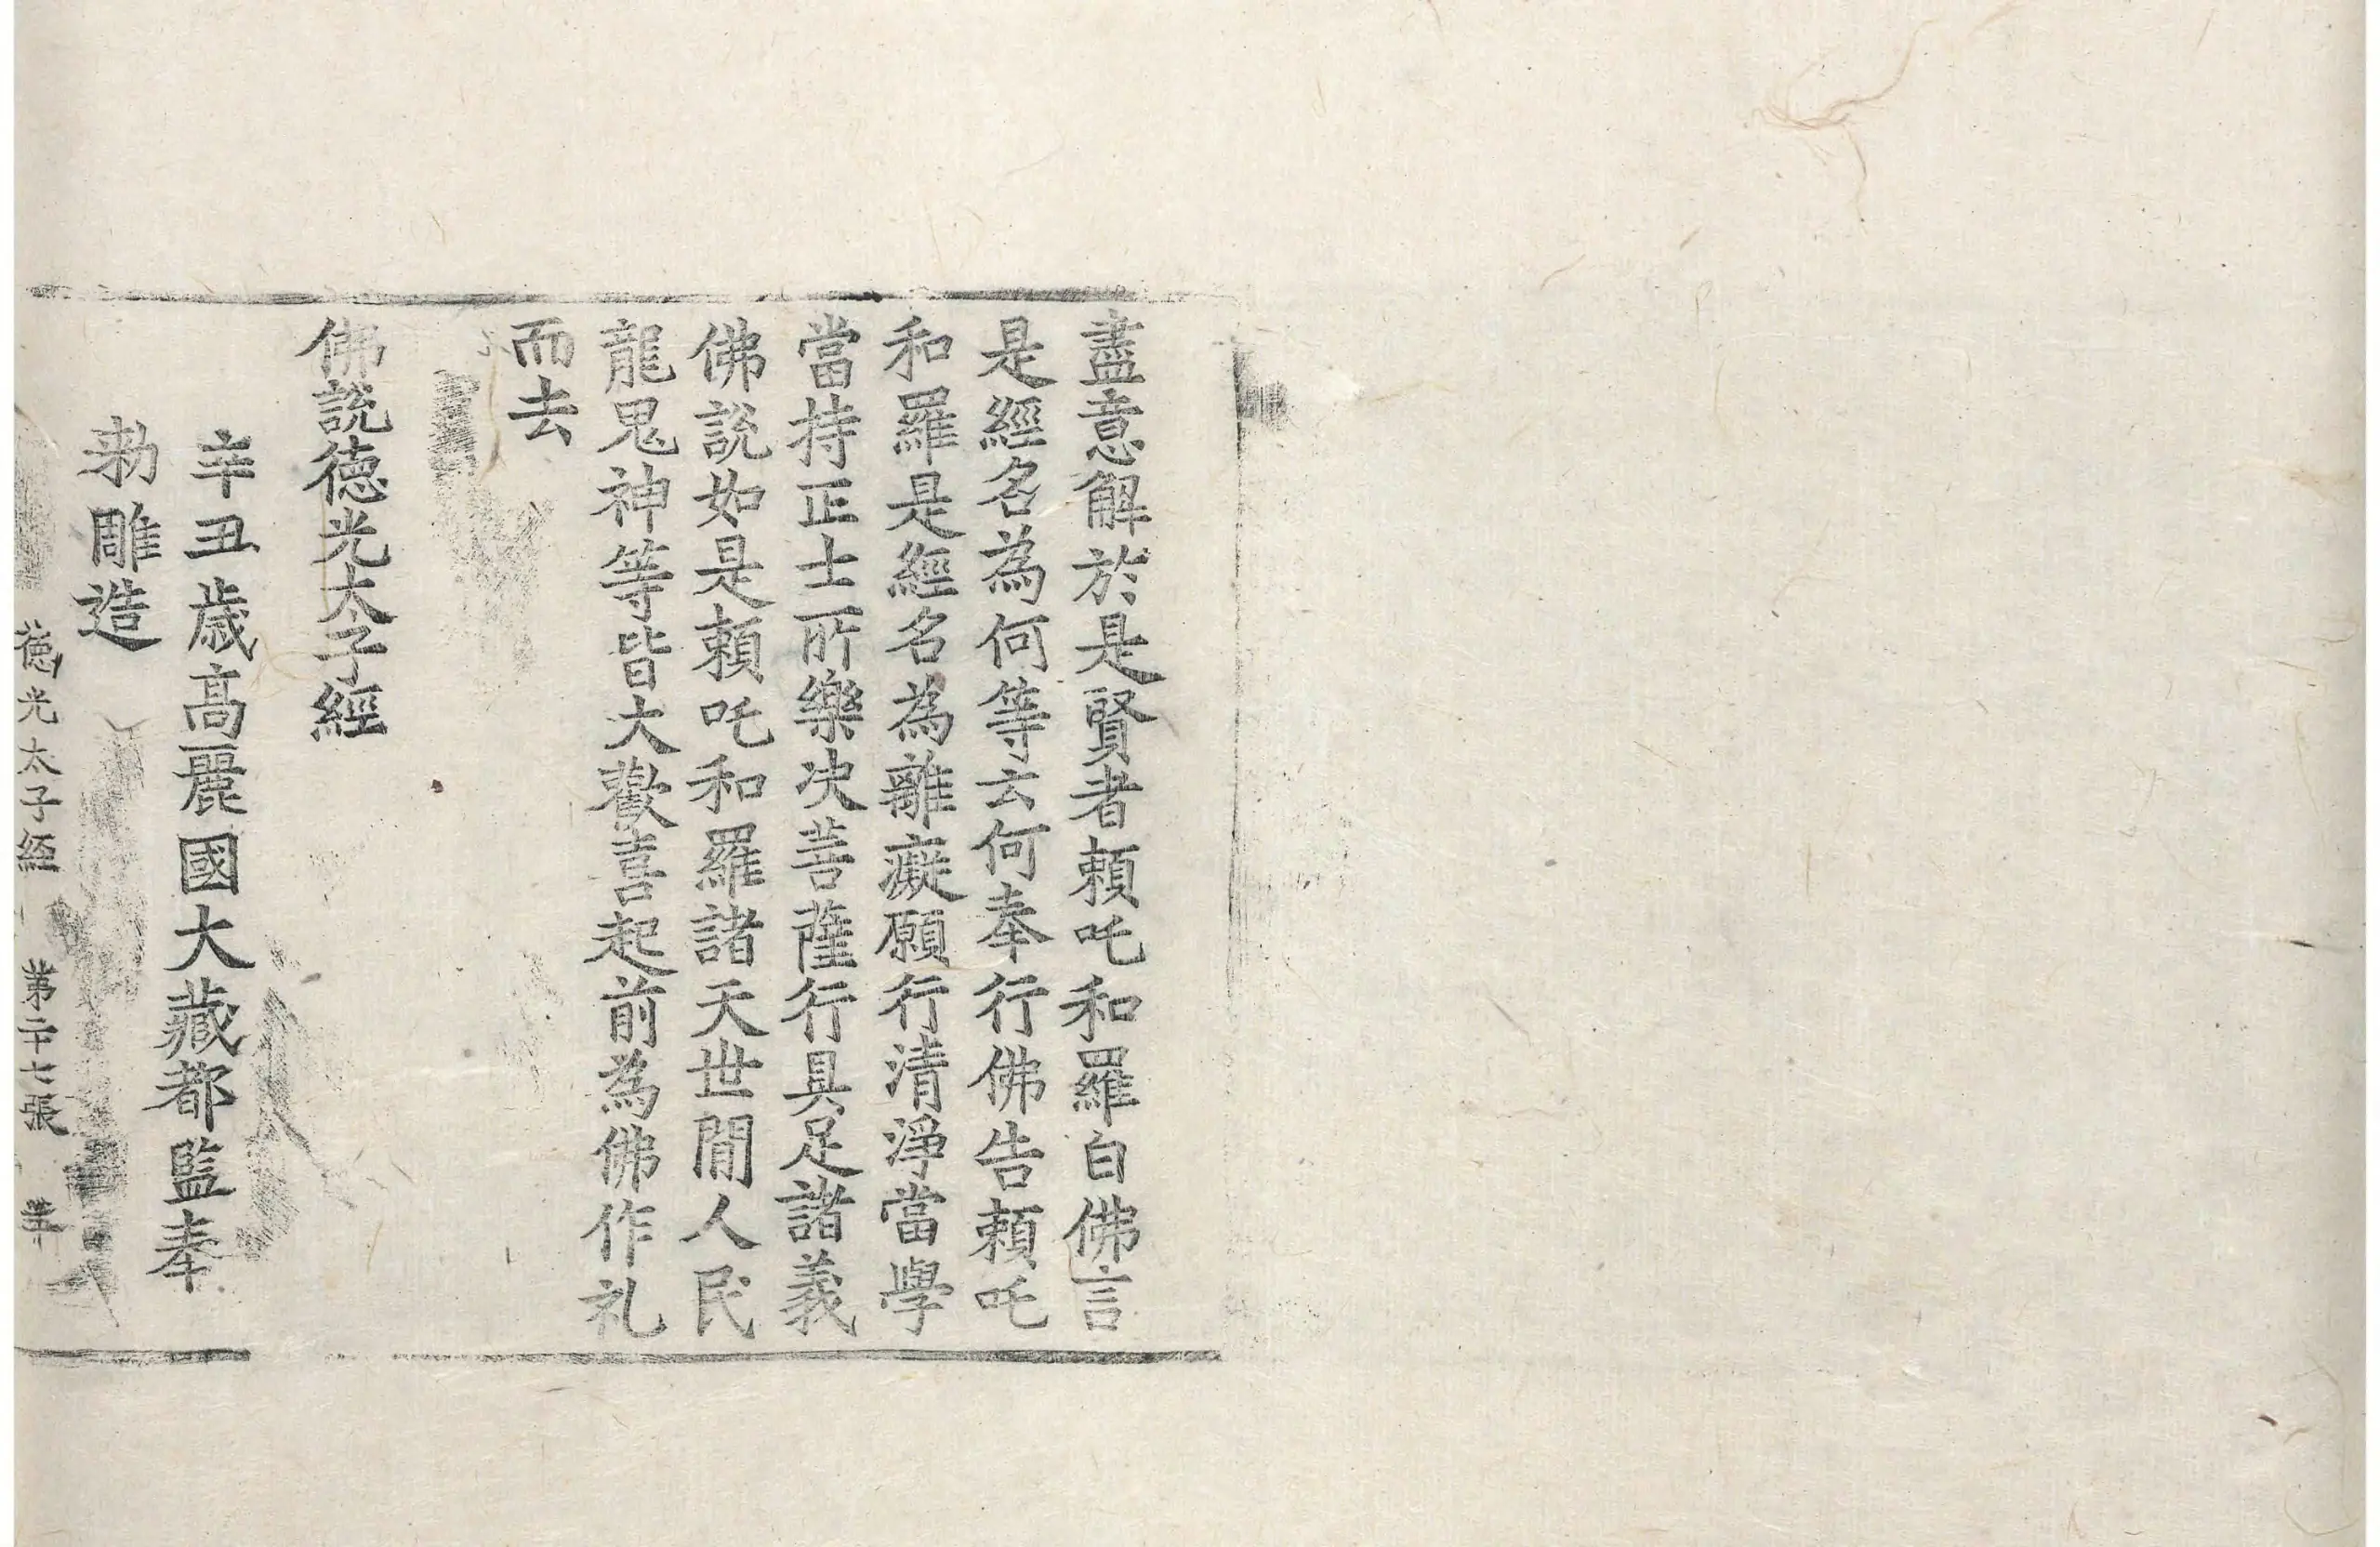 盡意解於是賢者頼吒和羅白佛言
是經名為何等云何奉行佛告頼吒
和羅是經名為離癡願行清淨當學
當持正士所樂决菩薩行具足諸義
佛說如是頼吒和羅諸天世間人民
龍鬼神等皆大歡喜起前為佛作礼
而去
佛說德光太子經
辛丑歳高麗國大藏都監奉
勑雕造
德光太子經 第二十七張